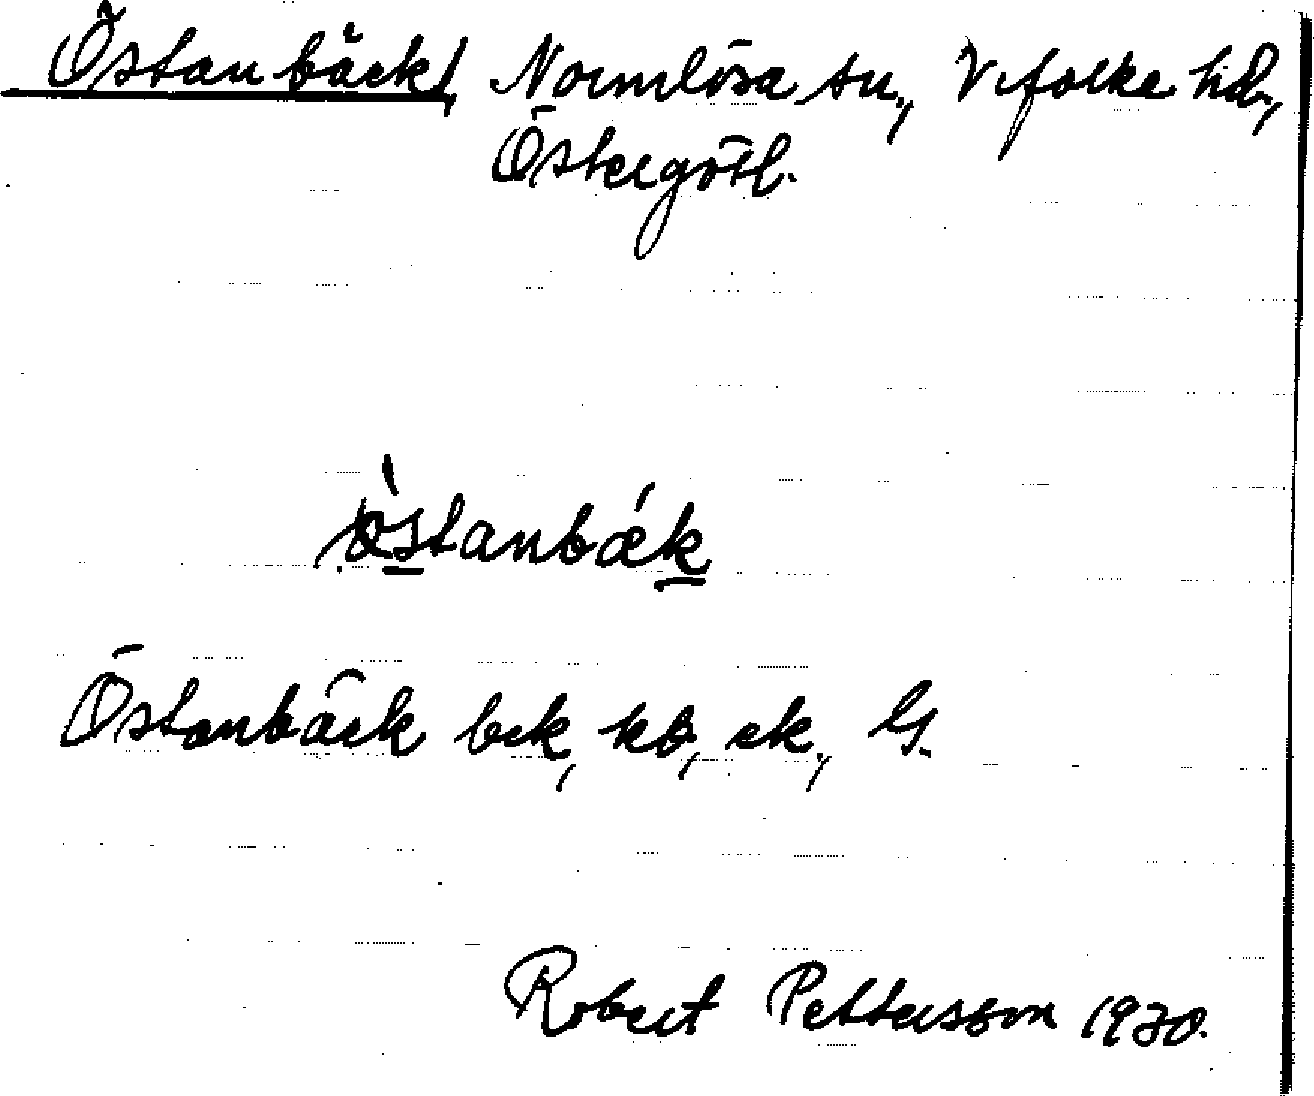 Östanbäck, Normlösa sn, Vifolka hd,
Östergötl.
òstanbǽk
Östanbäck bek, kb, ek, G.
Robert Pettersson 1930.